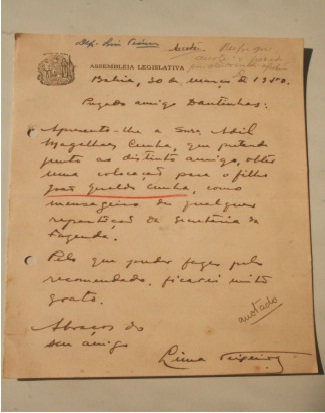 Dep. Luis
ASSEMBLEIA LEGISLATIVA
Bahia, 20 de março de 19
Prezado amigo Dantinhas:
Apresento-lhe a Snra Adil
Magalhães Cunha, que pretende
junto ao distinto amigo, obter
uma colocação para o filho
João Cunha, como
mensageiro de qualquer
repartição da Secretaria da
Fazenda.
Pelo que puder fazer pelo
recomendado, ficarei muito
grato.
Abraços do
seu amigo
Lima Teixeira
anotado